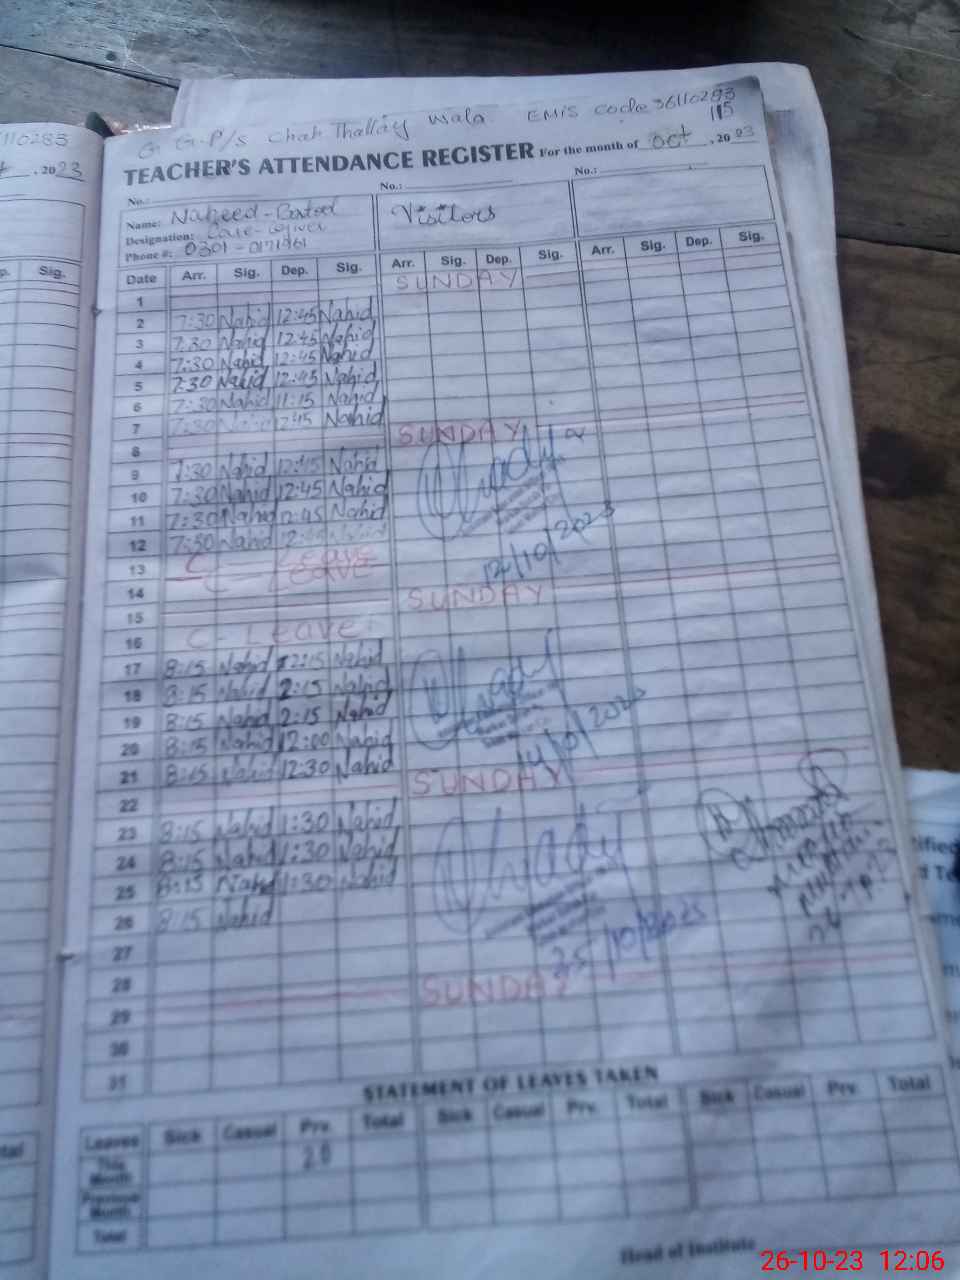 110283
, 2023
p. Sig.
G. G.P/S Chah Thallay Wala. EMIS Code 36110283
115
TEACHER'S ATTENDANCE REGISTER For the month of Oct , 2023
No.: No.: No.:
Name: Naheed - Visitors
Designation: Care-Giver
Phone #:
Date Arr. Sig. Dep. Sig. Arr. Sig. Dep. Sig. Arr. Sig. Dep. Sig.
1 SUNDAY
2 7:30 Nahid 12:45 Nahid
3 7:30 Nahid 12:45 Nahid
4 7:30 Nahid 12:45 Nahid
5 7:30 Nahid 12:45 Nahid
6 7:30 Nahid 11:15 Nahid
7 7:30 12:45 Nahid
8 SUNDAY
9 7:30 Nahid 12:45 Nahid
10 7:30 Nahid 12:45 Nahid
11 7:30 Nahid 12:45 Nahid
12 7:30 Nahid
12/10/2023
13 C - Leave
14 C - Leave
15 SUNDAY
16 C - Leave
17 8:15 Nahid Nahid
18 8:15 Nahid 2:15 Nahid
19 8:15 Nahid 2:15 Nahid
20 8:15 Nahid 12:00 Nahid
21 8:15 Nahid 12:30 Nahid
22 SUNDAY
23 8:15 Nahid 1:30 Nahid
24 8:15 Nahid 1:30 Nahid
25 8:15 Nahid 1:30 Nahid
26 8:15 Nahid
25/10/2023
27
28
29 SUNDAY
30
31
STATEMENT OF LEAVES TAKEN
Leaves Sick Casual Prv. Total Sick Casual Prv. Total Sick Casual Prv. Total
This Month 20
Previous Month
Total
Head of Institute
26-10-23 12:06